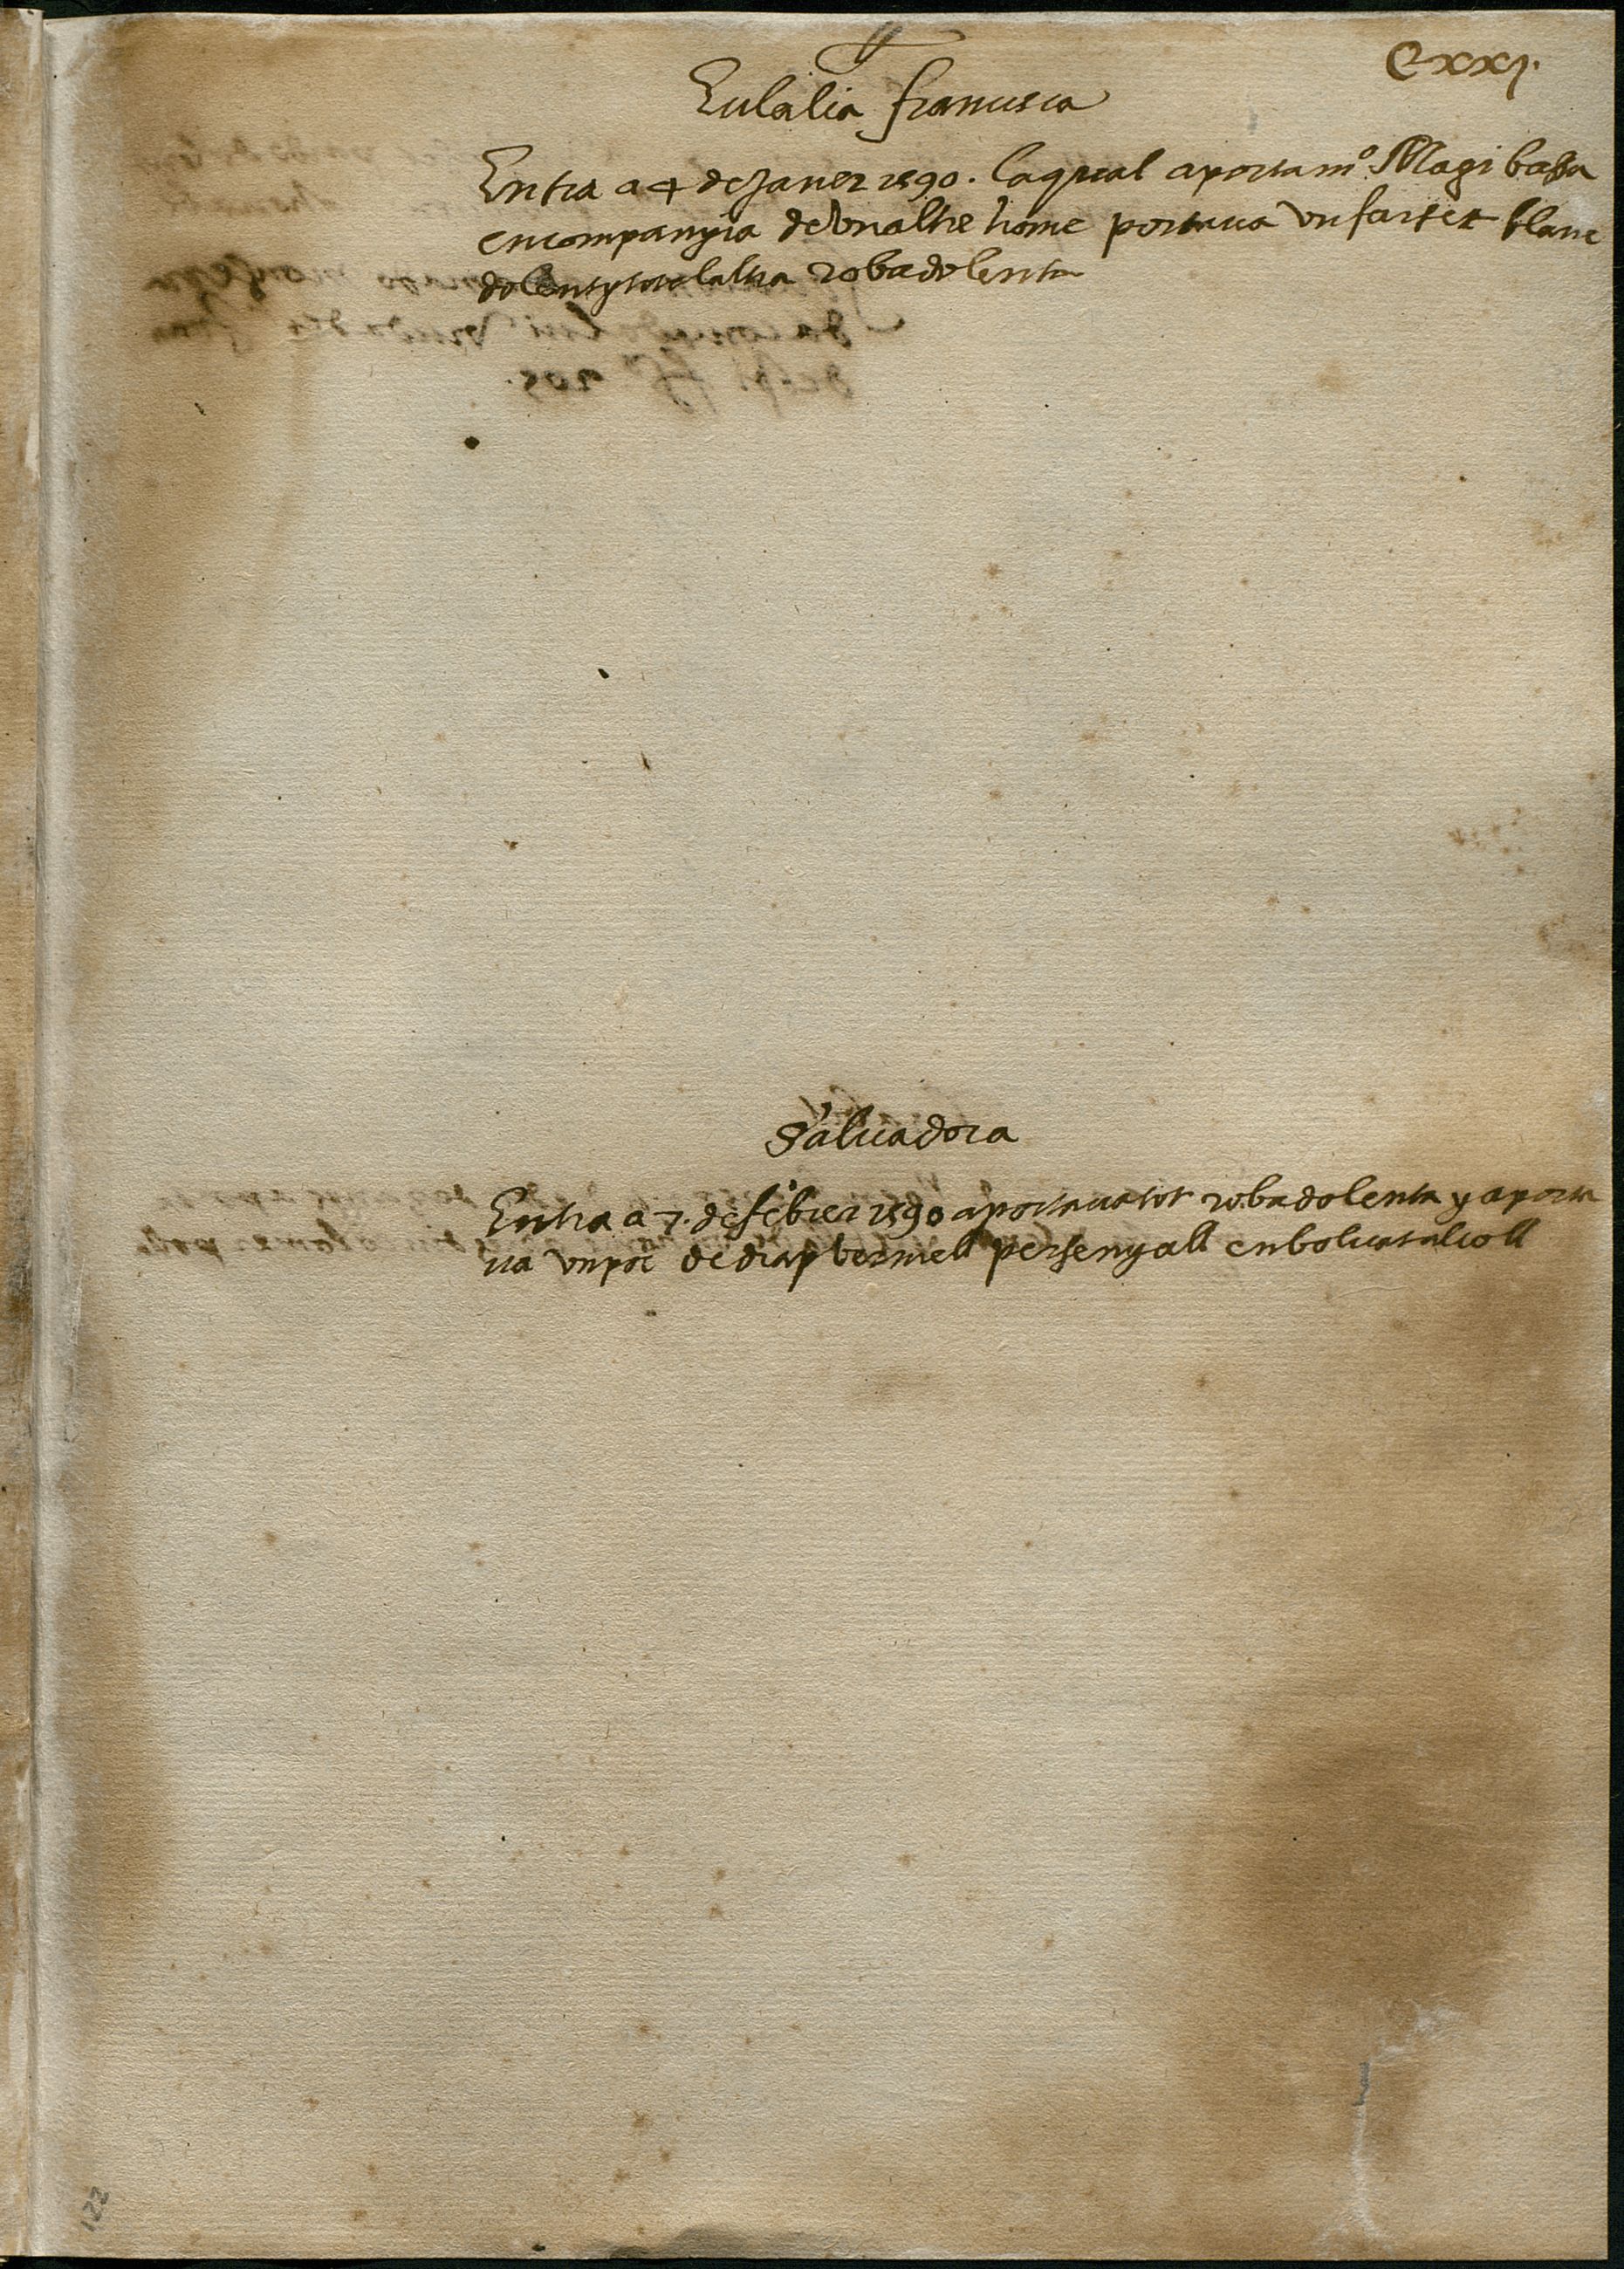 Cxxj.
Eulalia francisca
Entra a 4 de Janer 1590. laqual aporta mº. Magi bassa
encompanyia de vnaltre home portaua vn farset blanc
dolent y tota laltra roba dolenta
Saluadora
Entra a 7. de febrer 1590 aportaua tot roba dolenta y aporta
ua vn poc de drap vermell per senyall enboluat al coll
122